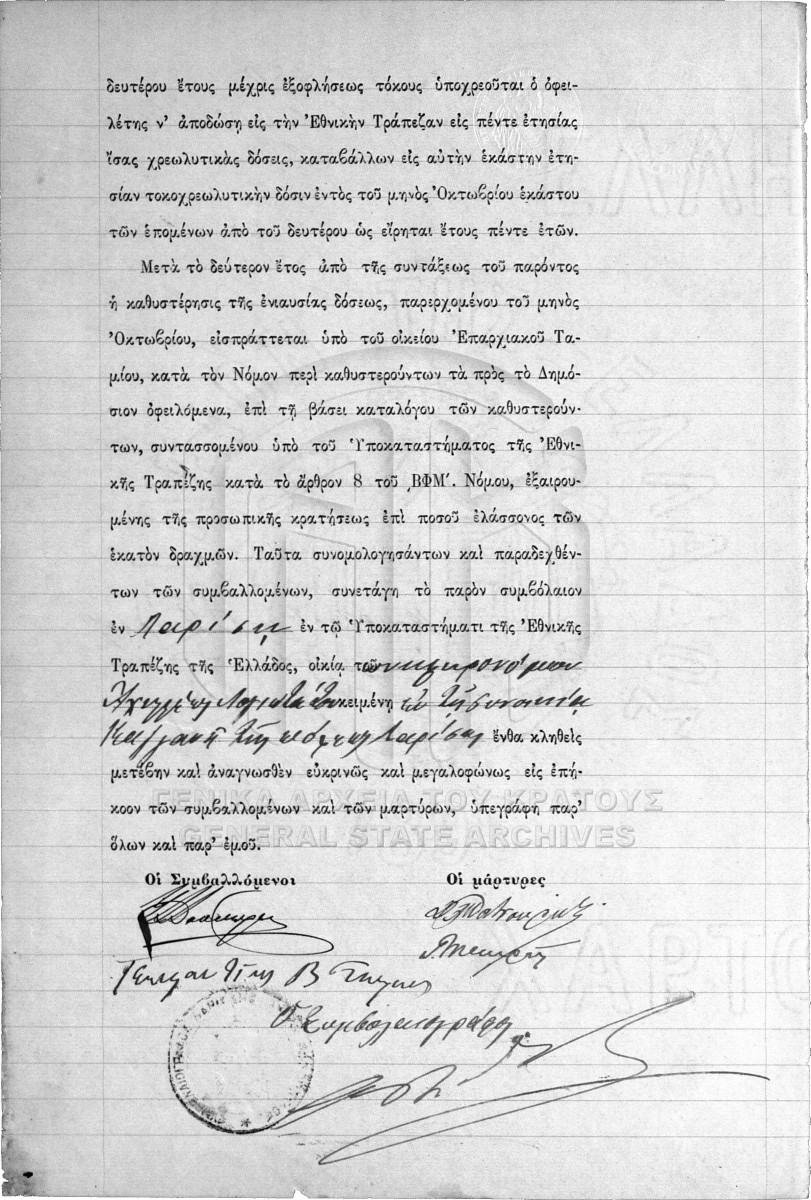 δευτέρου ἔτους μέχρις ἐξοφλήσεως τόκους ὑποχρεοῦται ὁ ὀφει-
λέτης ν' ἀποδώσῃ εἰς τὴν Ἐθνικὴν Τράπεζαν εἰς πέντε ἐτησίας
ἴσας χρεωλυτικὰς δόσεις, καταβάλλων εἰς αὐτὴν ἑκάστην ἐτη-
σίαν τοκοχρεωλυτικὴν δόσιν ἐντὸς τοῦ μηνὸς Ὀκτωβρίου ἑκάστου
τῶν ἑπομένων ἀπὸ τοῦ δευτέρου ὡς εἴρηται ἔτους πέντε ἐτῶν.
Μετὰ τὸ δεύτερον ἔτος ἀπὸ τῆς συντάξεως τοῦ παρόντος
ἡ καθυστέρησις τῆς ἐνιαυσίας δόσεως, παρερχομένου τοῦ μηνὸς
Ὀκτωβρίου, εἰσπράττεται ὑπὸ τοῦ οἰκείου Ἐπαρχιακοῦ Τα-
μίου, κατὰ τὸν Νόμον περὶ καθυστερούντων τὰ πρὸς τὸ Δημό-
σιον ὀφειλόμενα, ἐπὶ τῇ βάσει καταλόγου τῶν καθυστερούν-
των, συντασσομένου ὑπὸ τοῦ Ὑποκαταστήματος τῆς Ἐθνι-
κῆς Τραπέζης κατὰ τὸ ἄρθρον 8 τοῦ ͵ΒΦΜʹ. Νόμου, ἐξαιρου-
μένης τῆς προσωπικῆς κρατήσεως ἐπὶ ποσοῦ ἐλάσσονος τῶν
ἑκατὸν δραχμῶν. Ταῦτα συνομολογησάντων καὶ παραδεχθέν-
των τῶν συμβαλλομένων, συνετάγη τὸ παρὸν συμβόλαιον
ἐν Λαρίσῃ ἐν τῷ Ὑποκαταστήματι τῆς Ἐθνικῆς
Τραπέζης τῆς Ἑλλάδος, οἰκίᾳ τῶν κληρονόμων
κειμένῃ ἐν τῇ συνοικίᾳ
τῆς πόλεως Λαρίσης ἔνθα κληθεὶς
μετέβην καὶ ἀναγνωσθὲν εὐκρινῶς καὶ μεγαλοφώνως εἰς ἐπή-
κοον τῶν συμβαλλομένων καὶ τῶν μαρτύρων, ὑπεγράφη παρ'
ὅλων καὶ παρ' ἐμοῦ.
ΓΕΝΙΚΑ ΑΡΧΕΙΑ ΤΟΥ ΚΡΑΤΟΥΣ
GENERAL STATE ARCHIVES
Οἱ Συμβαλλόμενοι Οἱ μάρτυρες
Ὁ Συμβολαιογράφος